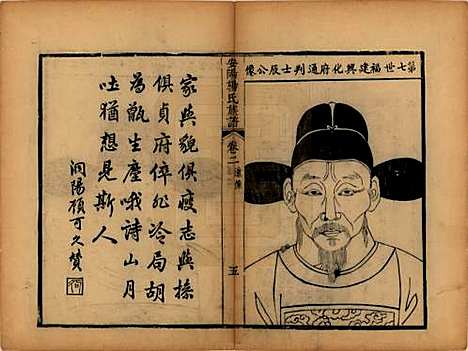 第七世福建興化府通判士辰公像
安陽楊氏族譜
卷二
遺像
五
家與貌俱瘦志與操
俱貞府倅非冷局胡
為甑生塵哦詩山月
吐猶想見斯人
洞陽顧可久贊